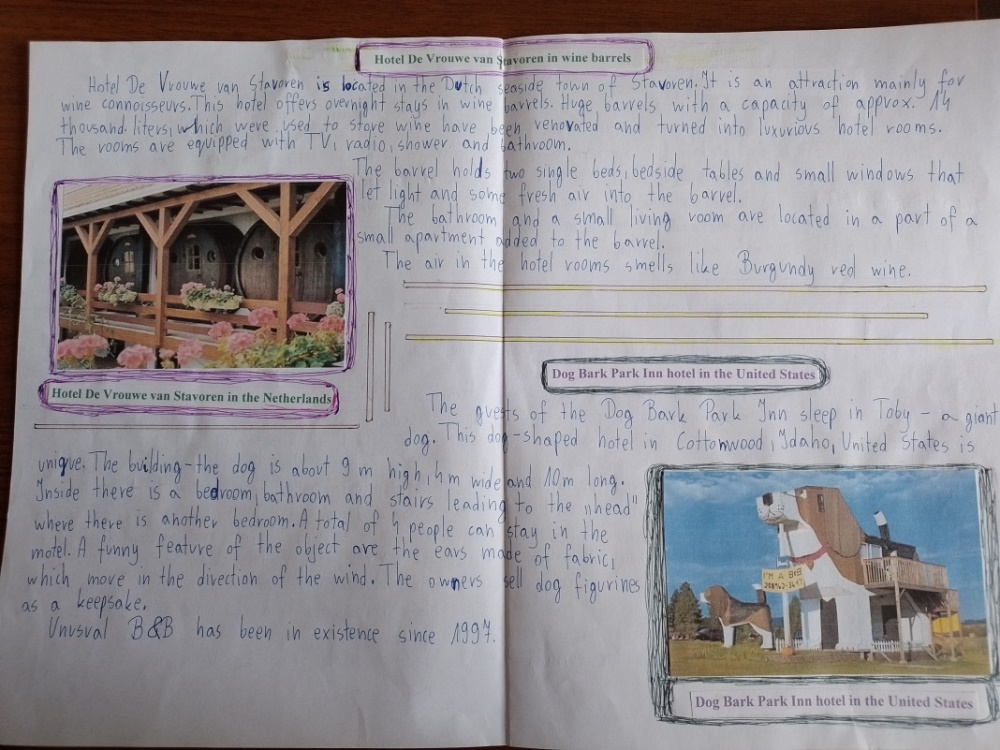 Hotel De Vrouwe van Stavoren in wine barrels
Hotel De Vrouwe van Stavoren is located in the Dutch seaside town of Stavoren. It is an attraction mainly for
wine connoisseurs. This hotel offers overnight stays in wine barrels. Huge barrels with a capacity of approx. 14
thousand liters, which were used to store wine have been renovated and turned into luxurious hotel rooms.
The rooms are equipped with TV, radio, shower and bathroom.
The barrel holds two single beds, bedside tables and small windows that
let light and some fresh air into the barrel.
The bathroom and a small living room are located in a part of a
small apartment added to the barrel.
The air in the hotel rooms smells like Burgundy red wine.
Hotel De Vrouwe van Stavoren in the Netherlands
Dog Bark Park Inn hotel in the United States
The guests of the Dog Bark Park Inn sleep in Toby - a giant
dog. This dog-shaped hotel in Cottonwood, Idaho, United States is
unique. The building - the dog is about 9 m high, 4m wide and 10m long.
Inside there is a bedroom, bathroom and stairs leading to the „head"
where there is another bedroom. A total of 4 people can stay in the
motel. A funny feature of the object are the ears made of fabric,
which move in the direction of the wind. The owners sell dog figurines
as a keepsake.
Unusual B&B has been in existence since 1997.
I'M A B&B
Dog Bark Park Inn hotel in the United States